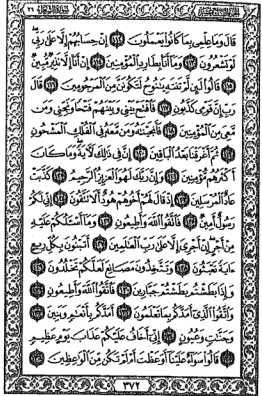 قَالَ وَمَا عِلْمِى بِمَا كَانُوا۟ يَعْمَلُونَ ١١٢ إِنْ حِسَابُهُمْ إِلَّا عَلَىٰ رَبِّى
لَوْ تَشْعُرُونَ ١١٣ وَمَآ أَنَا۠ بِطَارِدِ ٱلْمُؤْمِنِينَ ١١٤ إِنْ أَنَا۠ إِلَّا نَذِيرٌ مُّبِينٌ
١١٥ قَالُوا۟ لَئِن لَّمْ تَنتَهِ يَـٰنُوحُ لَتَكُونَنَّ مِنَ ٱلْمَرْجُومِينَ ١١٦ قَالَ
رَبِّ إِنَّ قَوْمِى كَذَّبُونِ ١١٧ فَٱفْتَحْ بَيْنِى وَبَيْنَهُمْ فَتْحًا وَنَجِّنِى وَمَن
مَّعِىَ مِنَ ٱلْمُؤْمِنِينَ ١١٨ فَأَنجَيْنَـٰهُ وَمَن مَّعَهُۥ فِى ٱلْفُلْكِ ٱلْمَشْحُونِ
١١٩ ثُمَّ أَغْرَقْنَا بَعْدُ ٱلْبَاقِينَ ١٢٠ إِنَّ فِى ذَٰلِكَ لَـَٔايَةً وَمَا كَانَ
أَكْثَرُهُم مُّؤْمِنِينَ ١٢١ وَإِنَّ رَبَّكَ لَهُوَ ٱلْعَزِيزُ ٱلرَّحِيمُ ١٢٢ كَذَّبَتْ
عَادٌ ٱلْمُرْسَلِينَ ١٢٣ إِذْ قَالَ لَهُمْ أَخُوهُمْ هُودٌ أَلَا تَتَّقُونَ ١٢٤ إِنِّى لَكُمْ
رَسُولٌ أَمِينٌ ١٢٥ فَٱتَّقُوا۟ ٱللَّهَ وَأَطِيعُونِ ١٢٦ وَمَآ أَسْـَٔلُكُمْ عَلَيْهِ
مِنْ أَجْرٍ إِنْ أَجْرِىَ إِلَّا عَلَىٰ رَبِّ ٱلْعَـٰلَمِينَ ١٢٧ أَتَبْنُونَ بِكُلِّ رِيعٍ
ءَايَةً تَعْبَثُونَ ١٢٨ وَتَتَّخِذُونَ مَصَانِعَ لَعَلَّكُمْ تَخْلُدُونَ ١٢٩
وَإِذَا بَطَشْتُم بَطَشْتُمْ جَبَّارِينَ ١٣٠ فَٱتَّقُوا۟ ٱللَّهَ وَأَطِيعُونِ ١٣١
وَٱتَّقُوا۟ ٱلَّذِىٓ أَمَدَّكُم بِمَا تَعْلَمُونَ ١٣٢ أَمَدَّكُم بِأَنْعَـٰمٍ وَبَنِينَ ١٣٣
وَجَنَّـٰتٍ وَعُيُونٍ ١٣٤ إِنِّىٓ أَخَافُ عَلَيْكُمْ عَذَابَ يَوْمٍ عَظِيمٍ
١٣٥ قَالُوا۟ سَوَآءٌ عَلَيْنَآ أَوَعَظْتَ أَمْ لَمْ تَكُن مِّنَ ٱلْوَٰعِظِينَ ١٣٦
٣٧٢